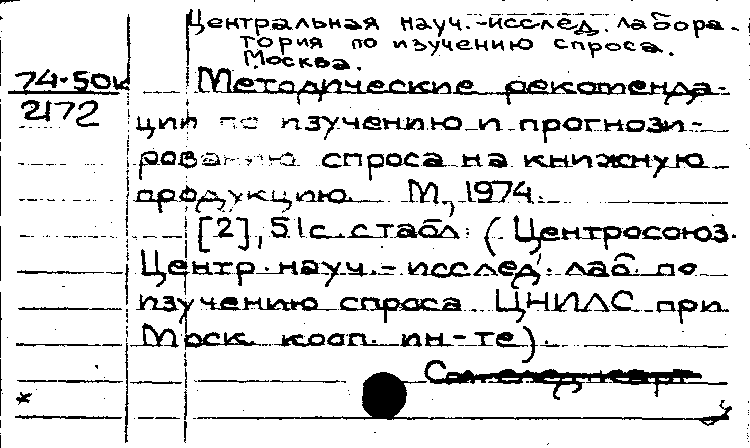 Центральная науч.-исслед. лабора-
тория по изучению спроса.
Москва.
74-50к
2172
Методические рекоменда-
ции по изучению и прогнози-
рованию спроса на книжную
продукцию. М., 1974.
[2], 51с. с табл. (Центросоюз.
Центр. науч.-исслед. лаб. по
изучению спроса ЦНИЛС при
Моск. кооп. ин-те).
См. след. карт
*